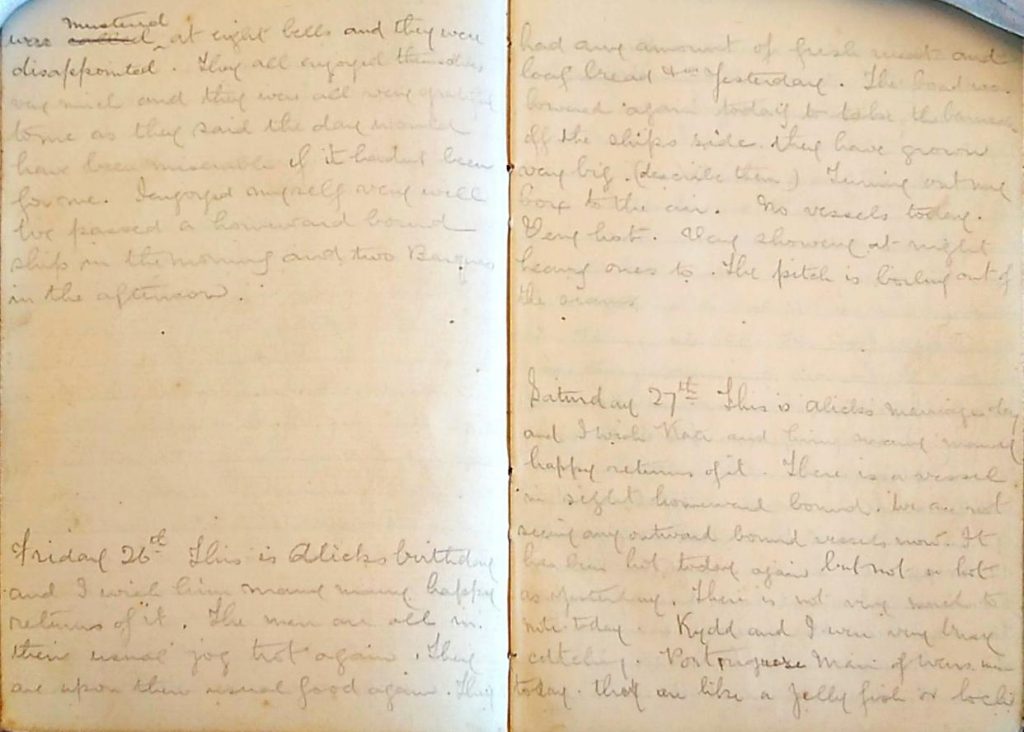 mustered
were called at eight bells and they were
disappointed. They all enjoyed themselves
very much and they were all very grateful
to me as they said the day would
have been miserable if it hadnt been
for me. I enjoyed myself very well
We passed a homeward bound
ship in the morning and two Barques
in the afternoon.
Friday 26th This is Alicks birthday
and I wish him many many happy
returns of it. The men are all in
their usual jog trot again. They
are upon their usual food again. They
had any amount of fresh meat and
loaf bread yesterday. The boat was
lowered again today to take the barnacles
off the ships side. they have grown
very big. (describe them) Turning out my
box to the air. No vessels today.
Very hot. Very showery at night
heavy ones to. The pitch is boiling out of
the seams
Saturday 27th This is Alicks marriage day
and I wish Kate and him many many
happy returns of it. There is a vessel
in sight homeward bound. We are not
seeing any outward bound vessels now. It
has been hot today again but not so hot
as yesterday. There is not very much to
note today. Kydd and I were very busy
catching Portonguese Man of Wars
today. they are like a Jelly fish or